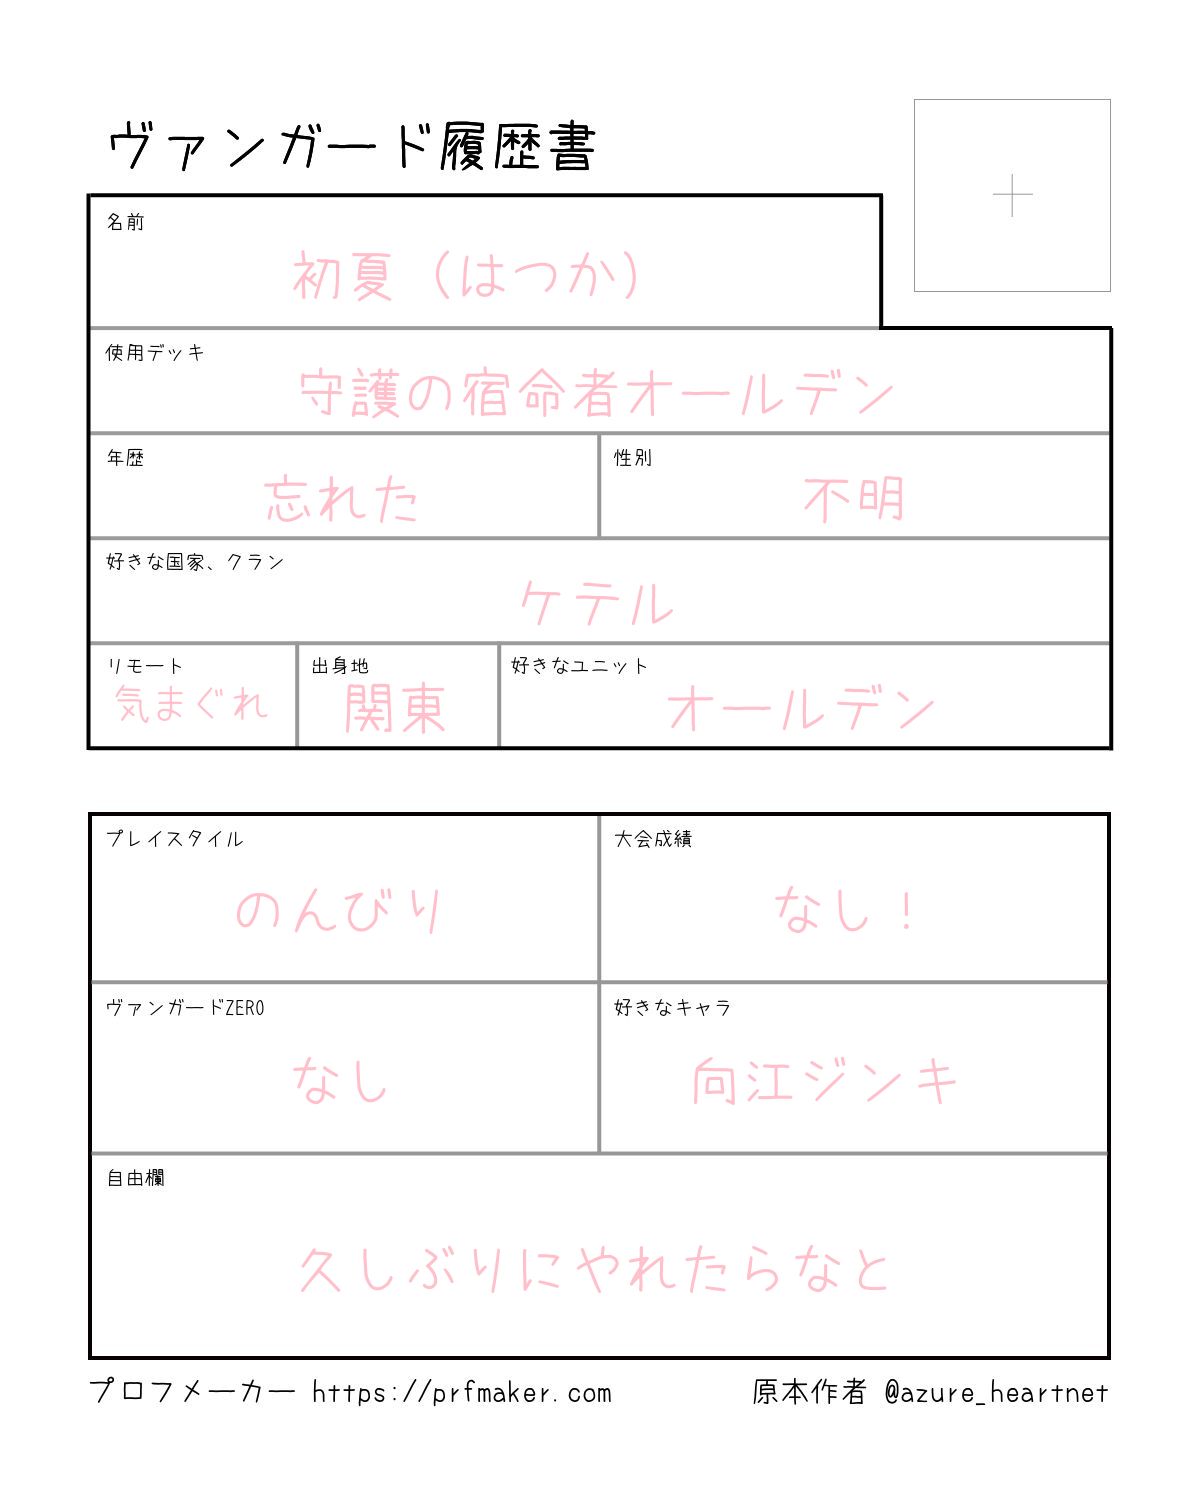 ヴァンガード履歴書
名前
初夏（はつか）
使用デッキ
守護の宿命者オールデン
年歴
忘れた
性別
不明
好きな国家、クラン
ケテル
リモート
気まぐれ
出身地
関東
好きなユニット
オールデン
プレイスタイル
のんびり
大会成績
なし！
ヴァンガードZERO
なし
好きなキャラ
向江ジンキ
自由欄
久しぶりにやれたらなと
プロフメーカー https://prfmaker.com
原本作者 @azure_heartnet